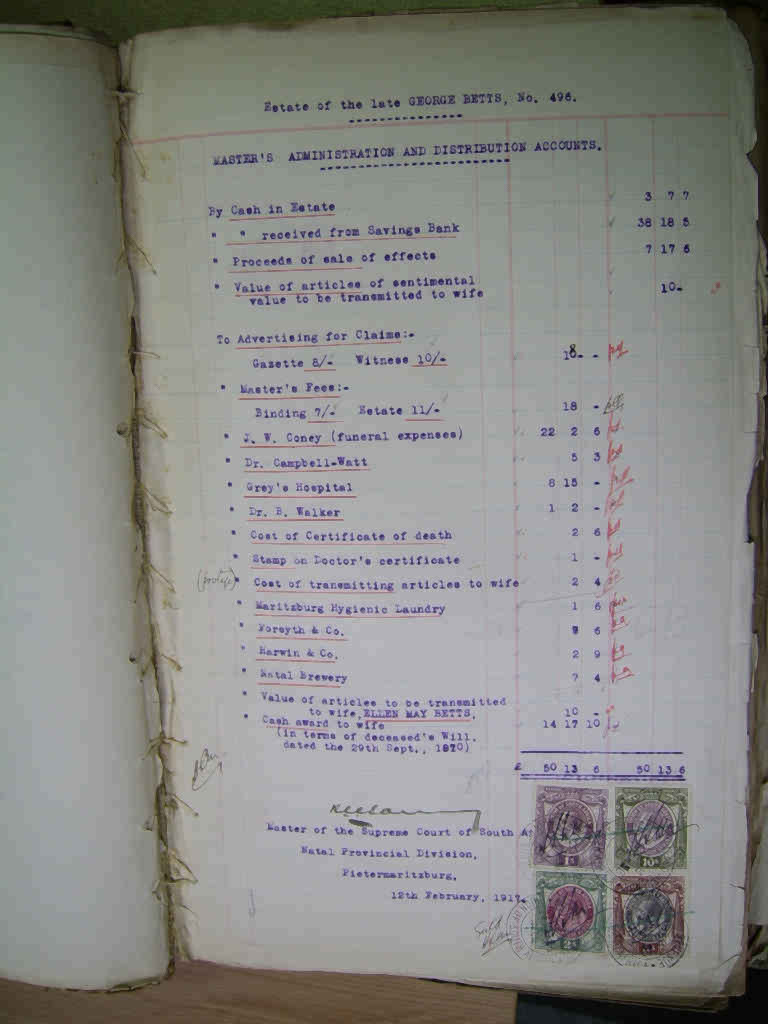 Estate of the late GEORGE BETTS, No. 496.
MASTER'S ADMINISTRATION AND DISTRIBUTION ACCOUNTS.
By Cash in Estate 3 7 7
" " received from Savings Bank 38 18 5
" Proceeds of sale of effects 7 17 6
" Value of articles of sentimental
value to be transmitted to wife 10-
To Advertising for Claims:-
Gazette 8/- Witness 10/- 18- -
" Master's Fees:-
Binding 7/- Estate 11/- 18 -
" J. W. Coney (funeral expenses) 22 2 6
" Dr. Campbell-Watt 5 3
" Grey's Hospital 8 15 -
" Dr. B. Walker 1 2 -
" Cost of Certificate of death 2 6
" Stamp on Doctor's certificate 1 -
(postage) " Cost of transmitting articles to wife 2 4
" Maritzburg Hygienic Laundry 1 6
" Forsyth & Co. 6
" Harwin & Co. 2 9
" Natal Brewery 7 4
" Value of articles to be transmitted
to wife, ELLEN MAY BETTS, 10 -
" Cash award to wife 14 17 10
(in terms of deceased's Will,
dated the 29th Sept., 1910)
£ 50 13 6 50 13 6
Master of the Supreme Court of South A
Natal Provincial Division,
Pietermaritzburg,
12th February, 1917.